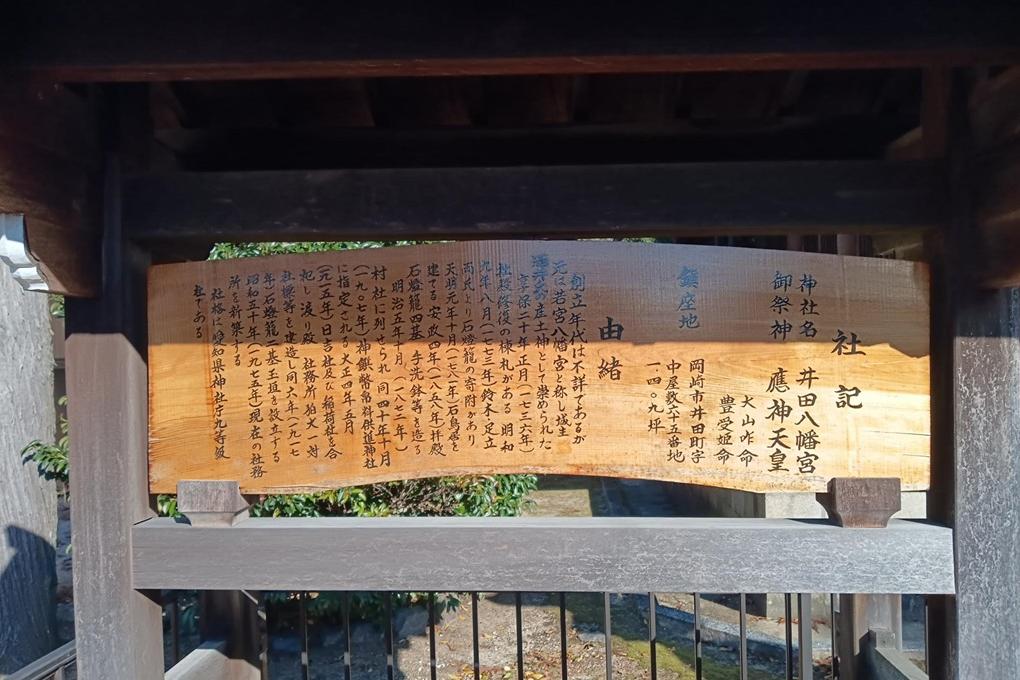 社記
神社名 井田八幡宮
御祭神 應神天皇
大山咋命
豊受姫命
鎮座地
岡崎市井田町字
中屋敷六十五番地
一四〇九坪
由緒
創立年代は不詳であるが
元は若宮八幡宮と称し城主
酒井家の産土神として崇められた
享保二十年正月(一七三六年)
社殿修復の棟札がある 明和
九年八月(一七七三年)鈴木 足立
両氏より石燈籠の寄附があり
天明元年十月(一七八一年)石鳥居を
建てる 安政四年(一八五八年)拝殿
石燈籠四基 手洗鉢等を造る
明治五年十月 (一八七二年)
村社に列せられ 同四十年十月
(一九〇七年)神饌幣帛料供進神社
に指定される 大正四年五月
(一九一五年)日吉社及び稲荷社を合
祀し 渡り殿 社務所 狛犬一対
社標等を建造し 同六年(一九一七
年)石燈籠二基 玉垣を設立する
昭和五十年(一九七五年)現在の社務
所を新築する
社格は愛知県神社庁九等級
社である